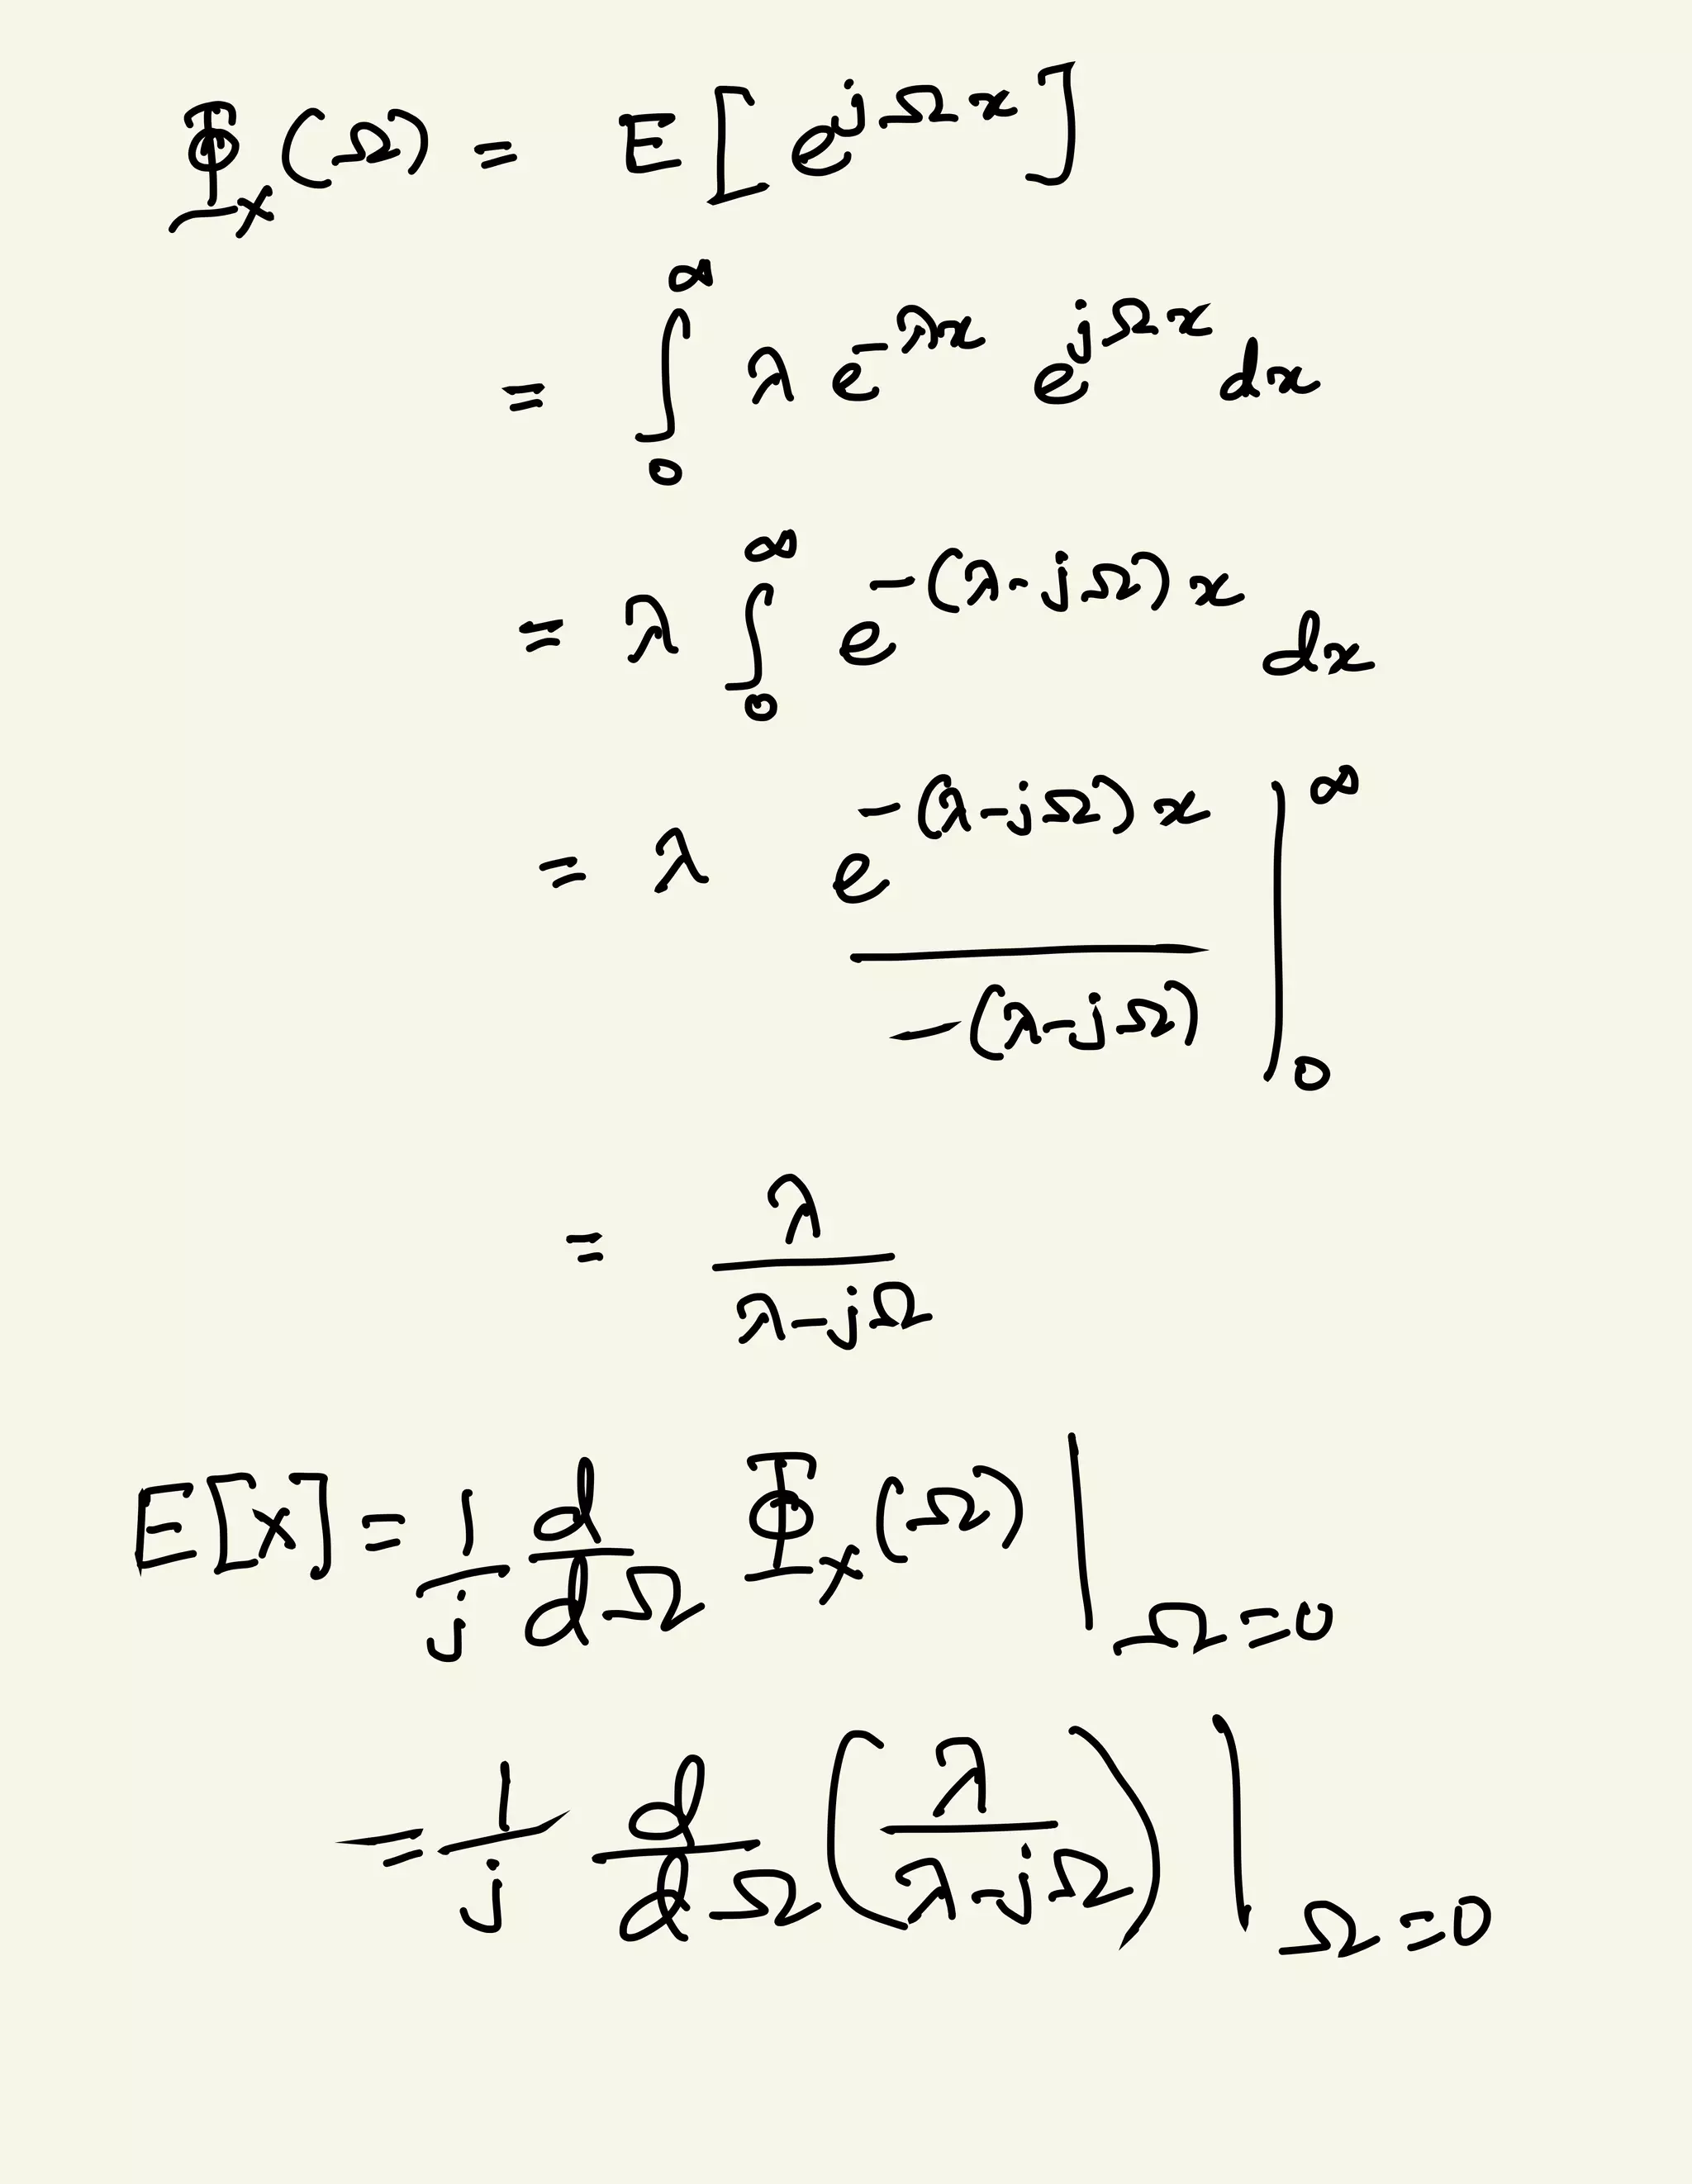 Φ_X(Ω) = E[e^{jΩx}]
= ∫_0^∞ λ e^{-λx} e^{jΩx} dx
= λ ∫_0^∞ e^{-(λ-jΩ)x} dx
= λ e^{-(λ-jΩ)x} / -(λ-jΩ) |_0^∞
= λ / (λ-jΩ)
E[X] = 1/j d/dΩ Φ_X(Ω) |_{Ω=0}
= 1/j d/dΩ (λ / (λ-jΩ)) |_{Ω=0}